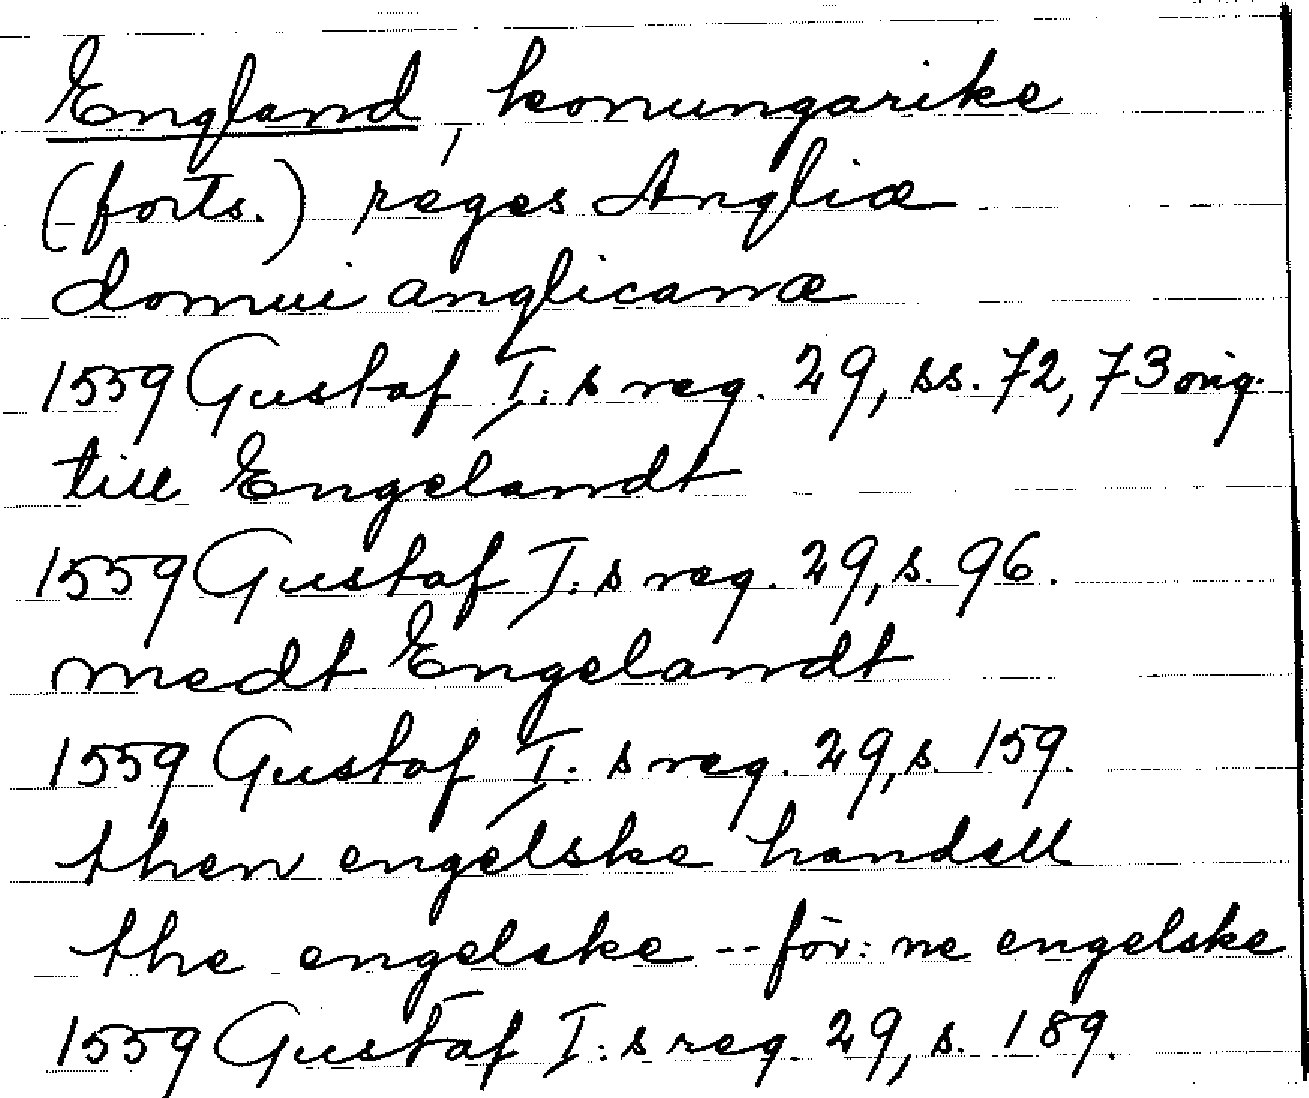 England, konungarike
(forts.) reges Angliæ
domui anglicanæ
1559 Gustaf I:s reg. 29, ss. 72, 73 orig.
till Engelandt
1559 Gustaf I:s reg. 29, s. 96.
medt Engelandt
1559 Gustaf I:s reg. 29, s. 159.
then engelske handell
the engelske -- för: ne engelske
1559 Gustaf I:s reg. 29, s. 189.